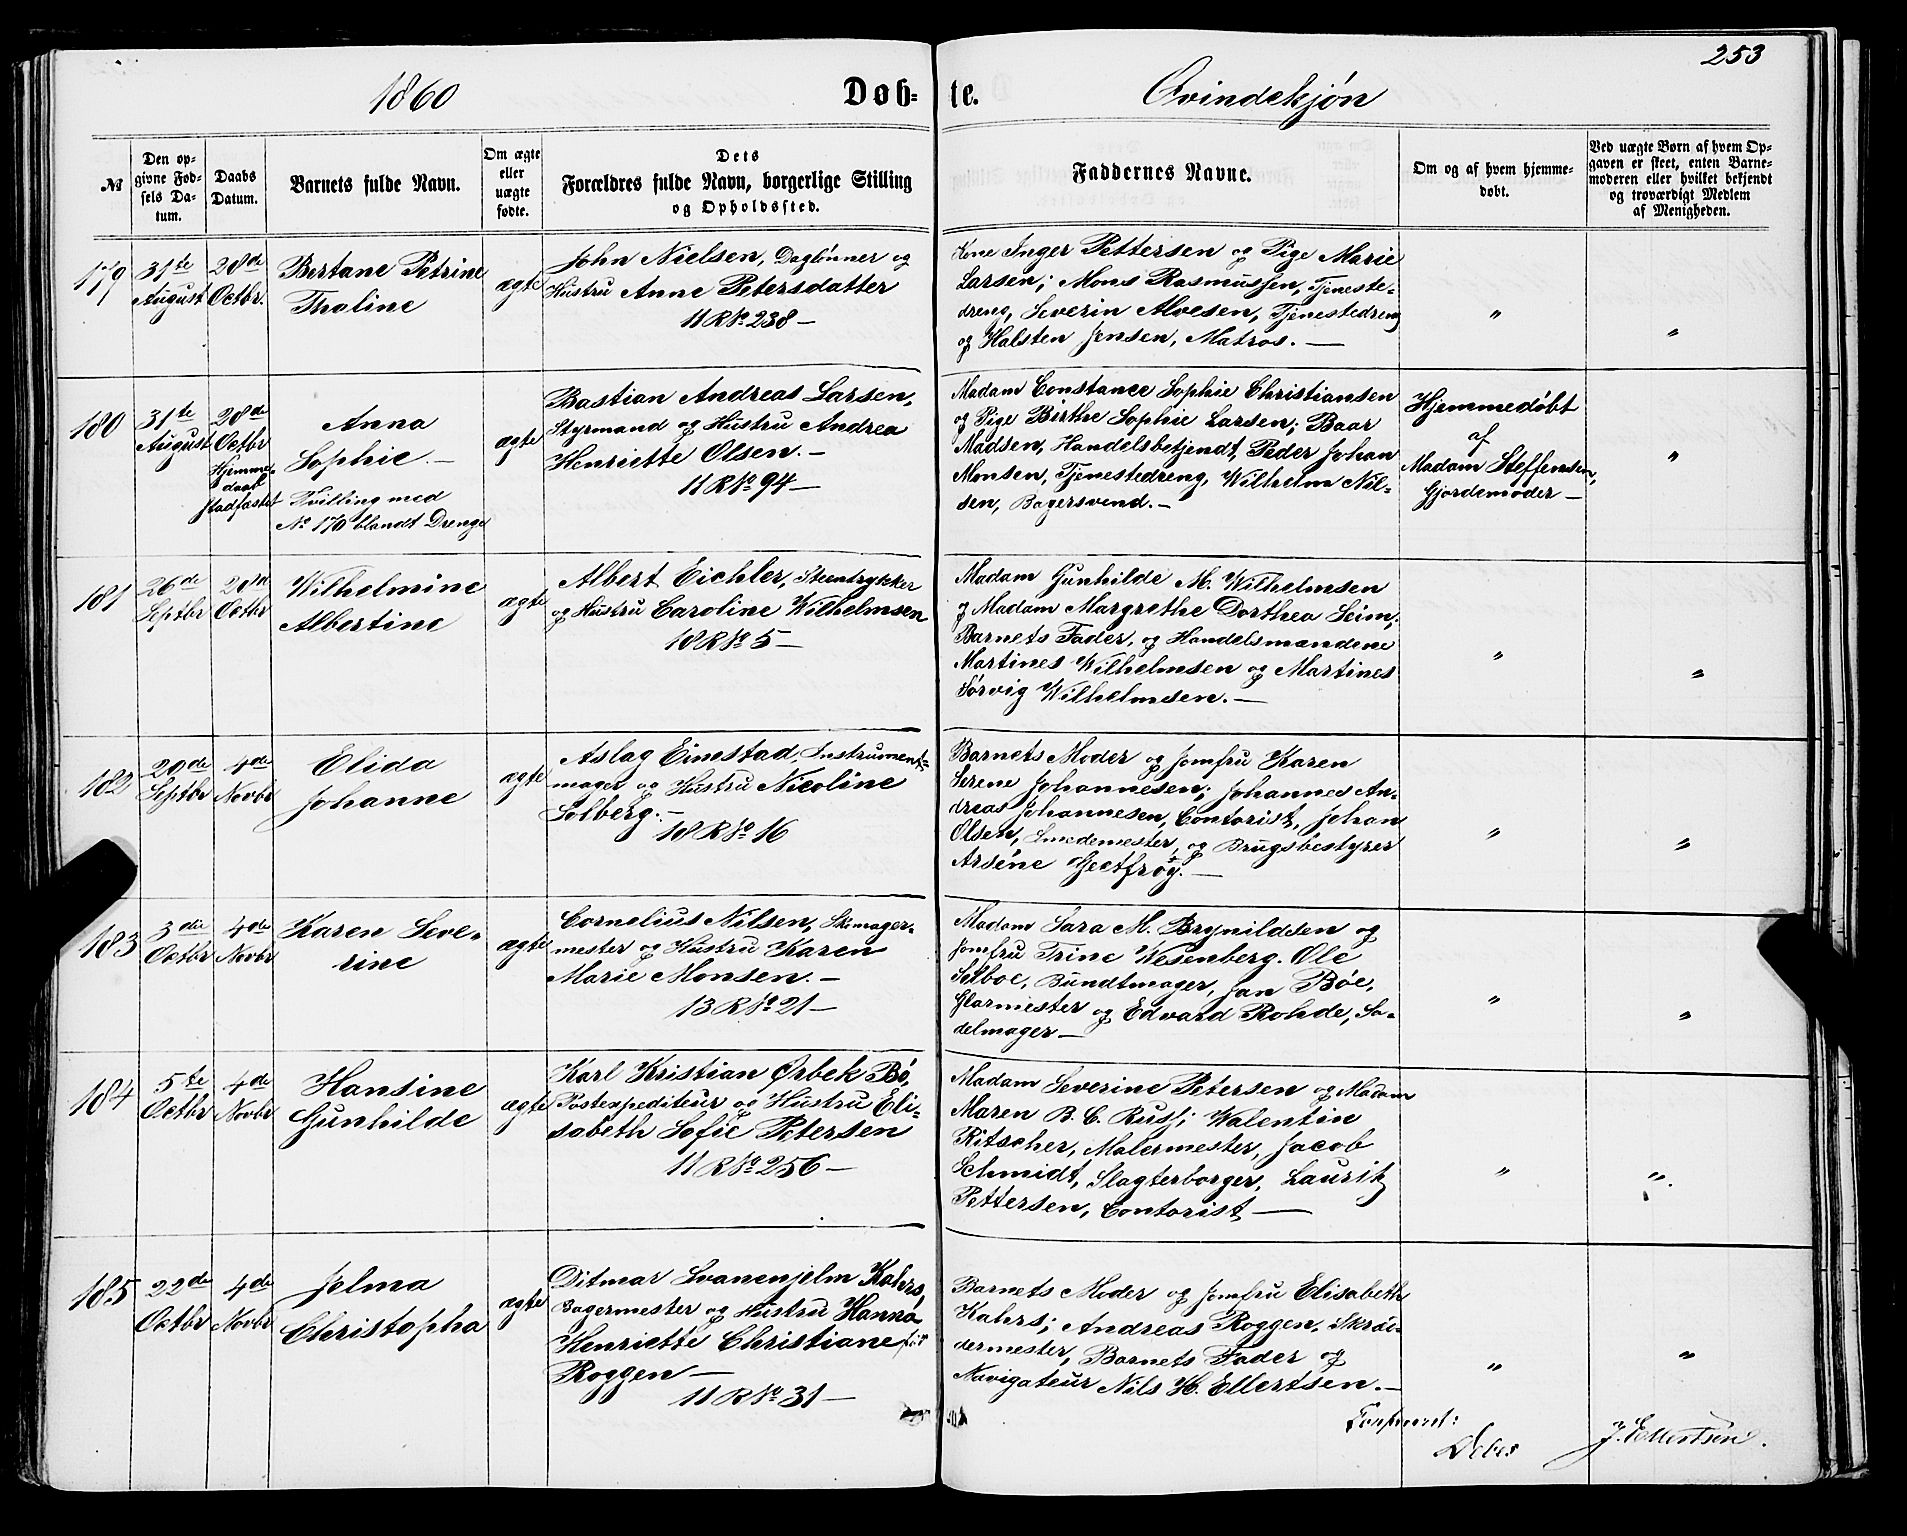 253
1860
Døb-
te.
Qvindekjøn
№
Den op-
givne Fød-
sels Da-
tum.
Daabs
Datum.
Barnets fulde Navn.
Om ægte
eller
uægte
fødte.
Dets
Forældres fulde Navn, borgerlige Stilling
og Opholdssted.
Faddernes Navne.
Om og af hvem hjemme-
døbt.
Ved uægte Børn af hvem Op-
gaven er skeet, enten Barne-
moderen eller hvilket bekjendt
og troværdigt Medlem
af Menigheden.
179
31te
August
28de
Octbr.
Bertane Petrine
Thaline
ægte
John Nielsen, Daglønner og
Hustru Anne Petersdatter
11 R № 238 —
Kone Inger Pettersen og Pige Marie
Larsen; Mons Rasmussen, Tjeneste-
dreng, Severin Alvesen, Tjenestedreng
og Halsten Jensen, Matros. —
"
"
180
31te
August
28de
Octbr
Hjemme-
daab
stadfæstet
Anna
Sophie. —
Tvilling med
№ 170 blandt Drenge
ægte
Bastian Andreas Larsen,
Styrmand og Hustru Andrea
Henriette Olsen. —
11 R № 94 —
Madam Constance Sophie Christiansen
og Pige Birthe Sophie Larsen; Baar
Madsen, Handelsbetjendt, Peder Johan
Monsen, Tjenestedreng, Wilhelm Nil-
sen, Bagersvend. —
Hjemmedøbt
af
Madam Steffensen,
Gjordemoder —
"
181
26de
Septbr
28de
Octbr
Wilhelmine
Albertine
ægte
Albert Eichler, Steentrykker
og Hustru Caroline Wilhelmsen
18 R № 5 —
Madam Gunhilde M. Wilhelmsen
og Madam Margrethe Dorthea Seim;
Barnets Fader, og Handelsmændene
Martines Wilhelmsen og Martines
Sørvig Wilhelmsen. —
"
"
182
20de
Septbr
4de
Novbr
Elida
Johanne
ægte
Aslag Einestad, Instrument-
mager og Hustru Nicoline
Solberg. —
18 R № 16
Barnets Moder og Jomfru Karen
Serene Johannesen; Johannes An-
dreas Johannesen, Contorist, Johan
Olsen, Smedemester, og Brugsbestyrer
Arséne Geetfrøy. —
"
"
183
3die
Octbr
4de
Novbr
Karen Seve-
rine
ægte
Cornelius Nilsen, Skomager-
mester og Hustru Karen
Marie Monsen. —
13 R № 21 —
Madam Sara M. Brynildsen og
Jomfru Trine Wesenberg. Ole
Selboe, Bundtmager, Jan Bøe,
Glarmester og Edvard Rohde, Sa-
delmager —
"
"
184
5te
Octbr
4de
Novbr
Hansine
Gunhilde
ægte
Karl Kristian Ørbek Bø,
Postexpediteur og Hustru Eli-
sabeth Sofie Petersen
11 R № 256 —
Madam Severine Petersen og Madam
Maren B. C. Rusj; Walentin
Ritscher, Malermester, Jacob
Schmidt, Slagterborger, Lauritz
Pettersen, Contorist —
"
"
185
22de
Octbr
4de
Novbr
Jelma
Christopha
ægte
Ditmar Svanenjelm Kahrs,
Bagermester og Hustru Hanna
Henriette Christiane før
Roggen —
11 R № 31 —
Barnets Moder og Jomfru Elisabeth
Kahrs; Andreas Roggen, Skræd-
dermester, Barnets Fader og
Navigateur Nils H. Ellertsen. —
"
"
Conformt:
Debes
J. Ellertsen.